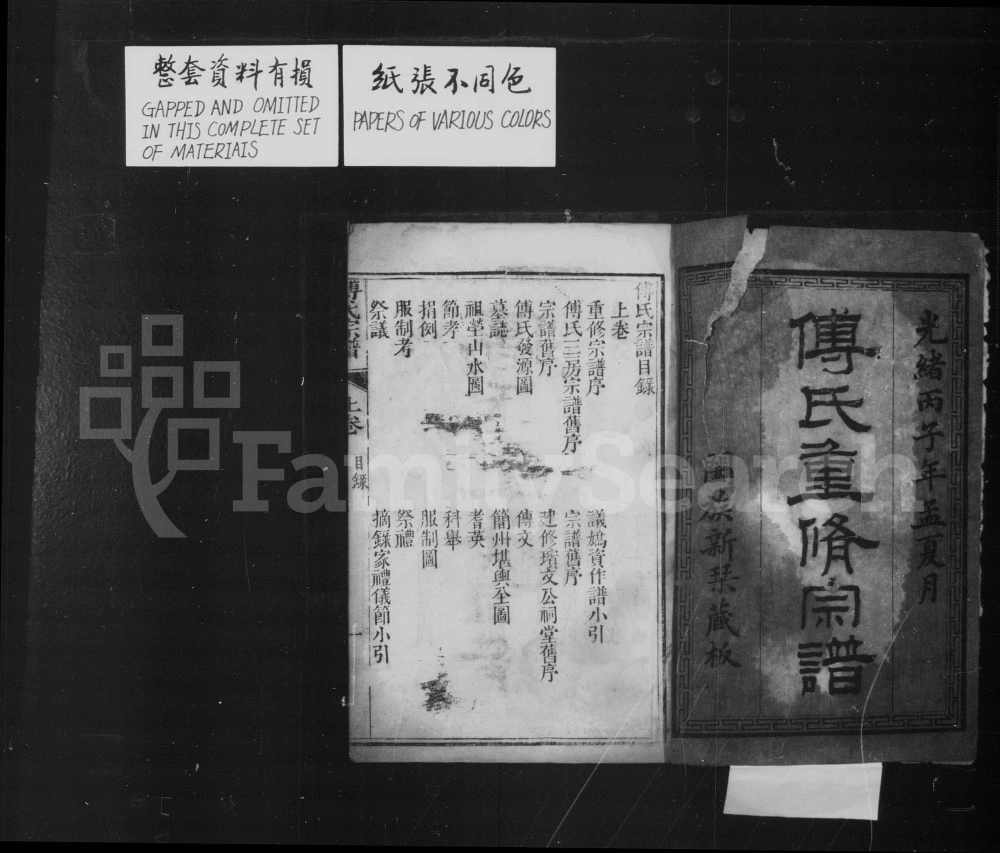 整套資料有損
GAPPED AND OMITTED
IN THIS COMPLETE SET
OF MATERIAIS
紙張不同色
PAPERS OF VARIOUS COLORS
光緒丙子年孟夏月
傅氏重修宗譜
新栞藏板
傅氏宗譜目錄
上卷
重修宗譜序
議捐資作譜小引
傅氏三房宗譜舊序
宗譜舊序
宗譜舊序
建修璸文公祠堂舊序
傅氏發源圖
傳文
墓誌
簡州堪輿全圖
祖塋山水圖
耆英
節孝
科舉
捐例
服制圖
服制考
祭禮
祭議
摘錄家禮儀節小引
傅氏宗譜
上卷
目錄
一
FamilySearch